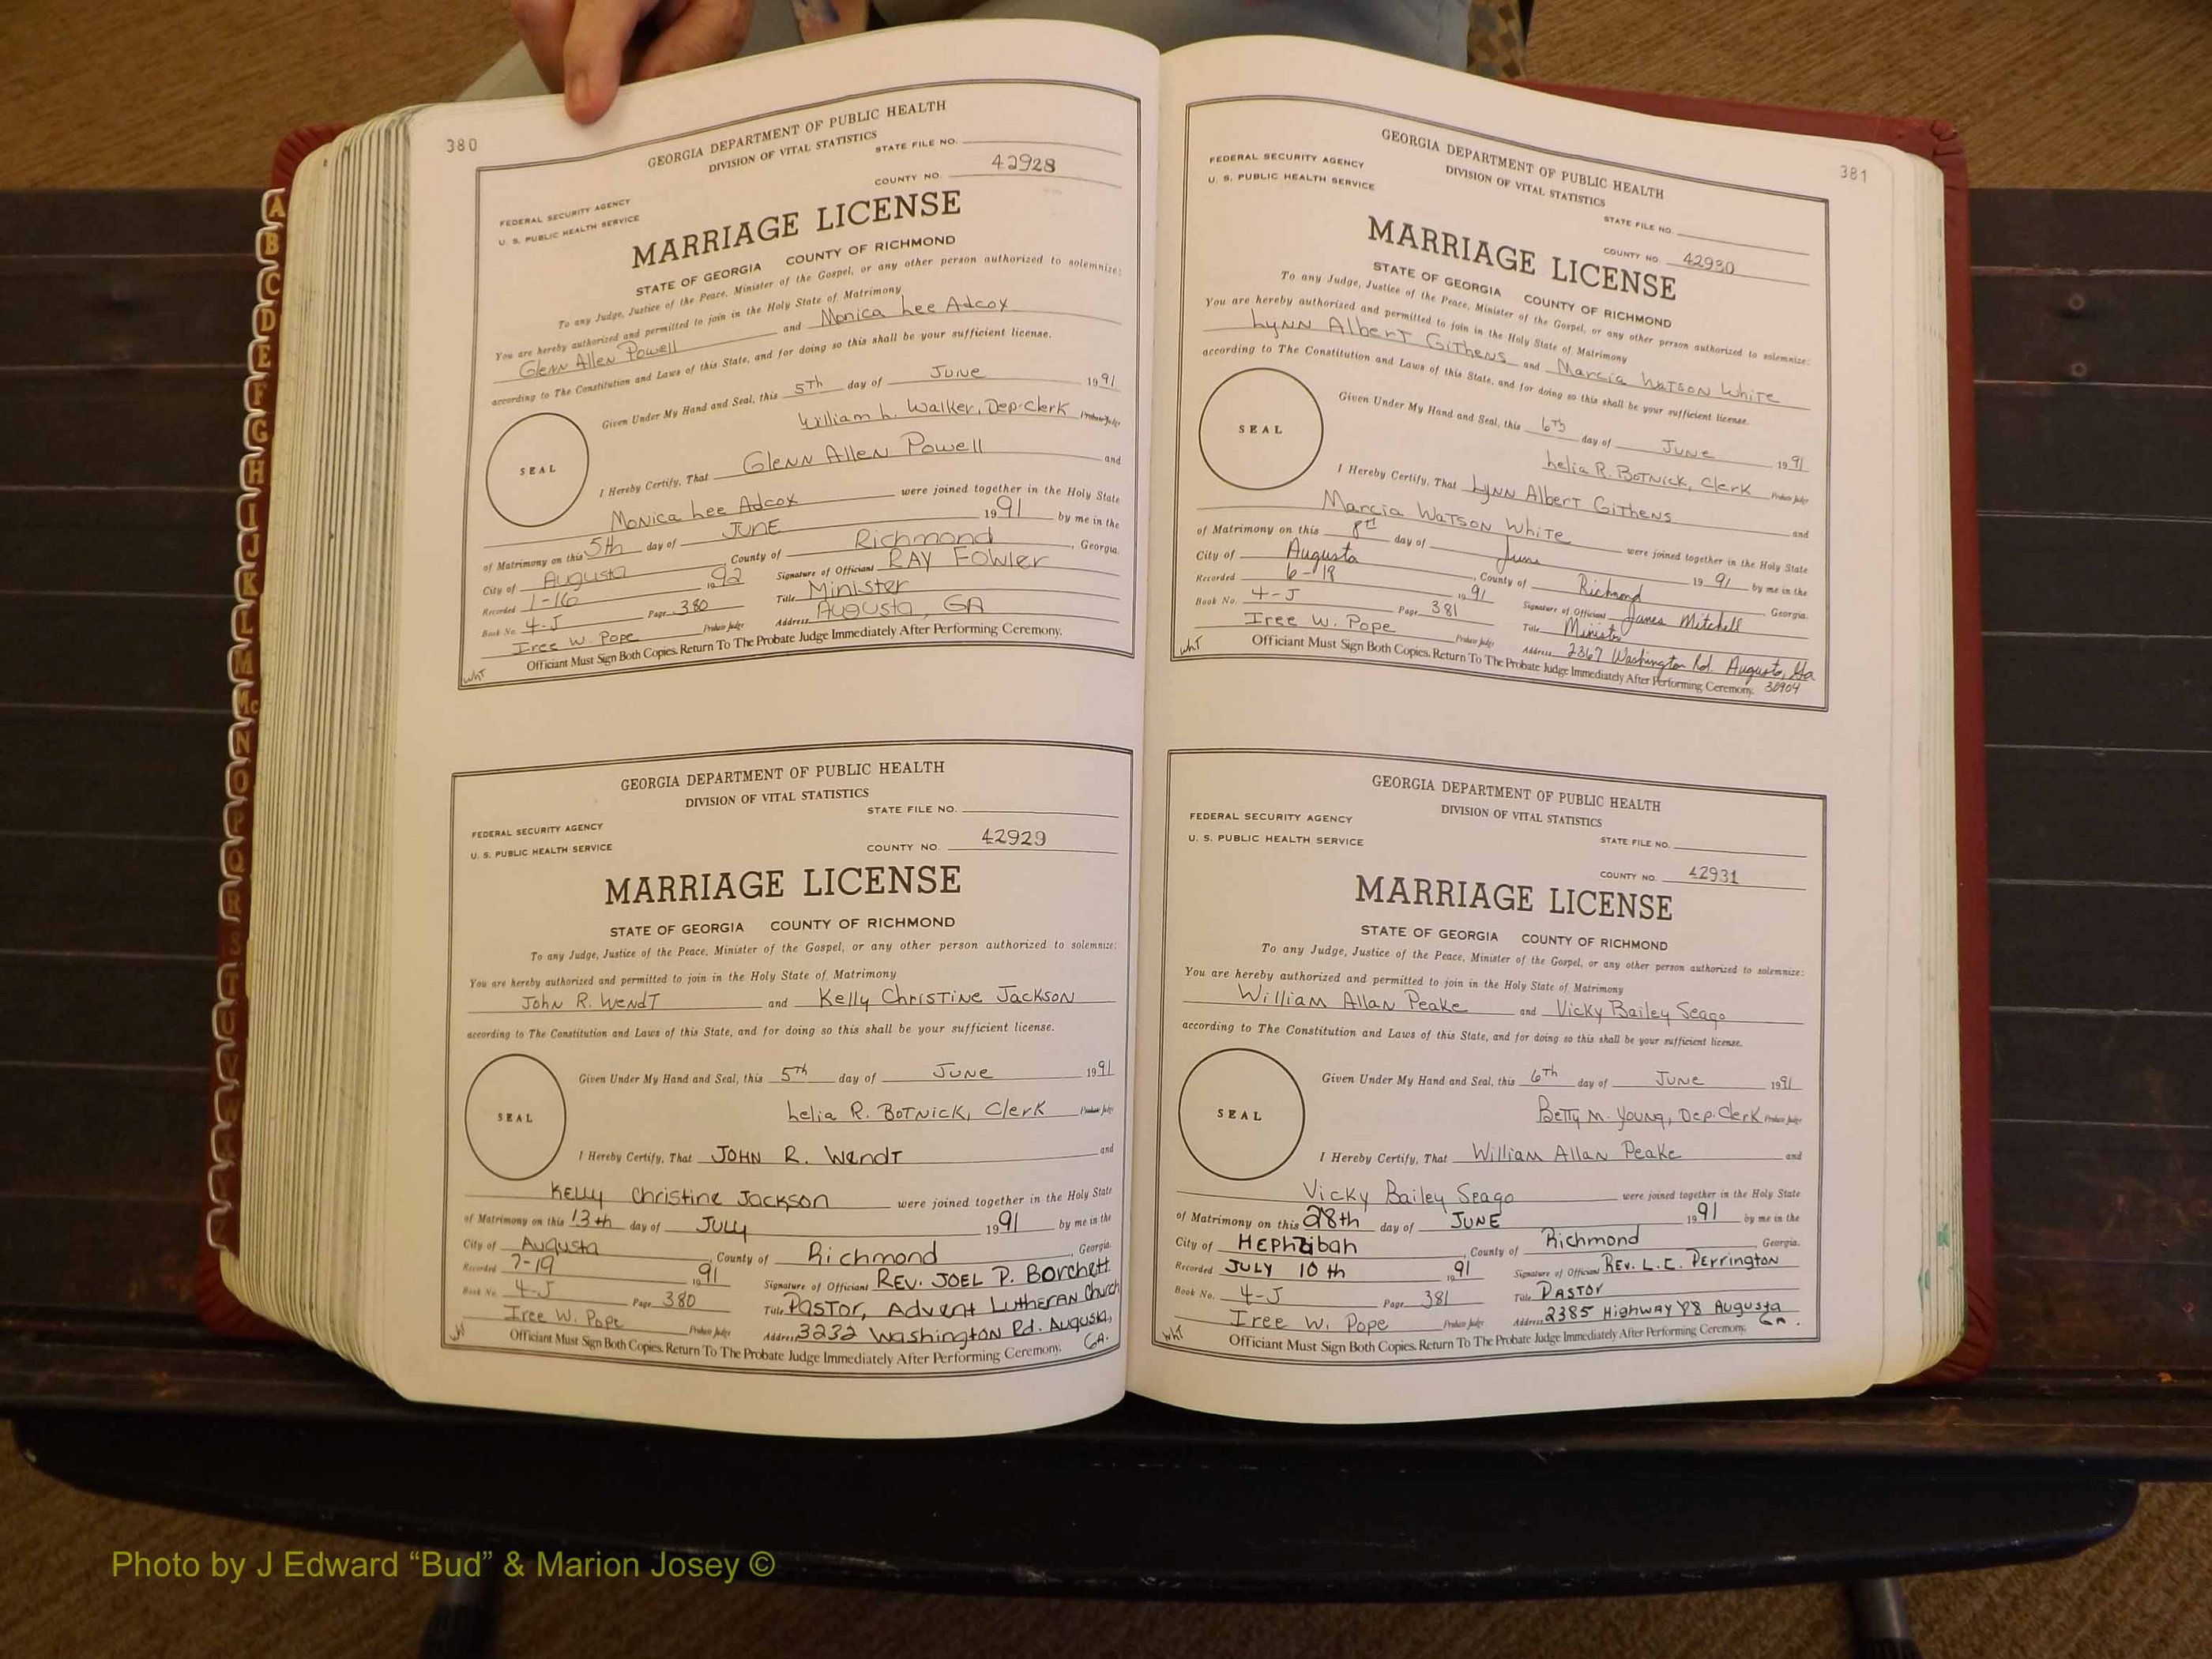 380
GEORGIA DEPARTMENT OF PUBLIC HEALTH
DIVISION OF VITAL STATISTICS
STATE FILE NO.
FEDERAL SECURITY AGENCY
U. S. PUBLIC HEALTH SERVICE
COUNTY NO. 42928
MARRIAGE LICENSE
STATE OF GEORGIA COUNTY OF RICHMOND
To any Judge, Justice of the Peace, Minister of the Gospel, or any other person authorized to solemnize:
You are hereby authorized and permitted to join in the Holy State of Matrimony
Glenn Allen Powell and Monica Lee Adcox
according to The Constitution and Laws of this State, and for doing so this shall be your sufficient license.
Given Under My Hand and Seal, this 5Th day of June 1991
William L. Walker, Dep-Clerk Probate Judge
SEAL
I Hereby Certify, That Glenn Allen Powell and
Monica Lee Adcox were joined together in the Holy State
of Matrimony on this 5th day of JUNE 1991 by me in the
City of Augusta, County of Richmond, Georgia.
Recorded 1-16 1992 Signature of Officiant RAY Fowler
Book No. 4-J Page 380 Title Minister
Iree W. Pope Probate Judge Address Augusta, GA
Officiant Must Sign Both Copies. Return To The Probate Judge Immediately After Performing Ceremony.
WHT
GEORGIA DEPARTMENT OF PUBLIC HEALTH
DIVISION OF VITAL STATISTICS
STATE FILE NO.
FEDERAL SECURITY AGENCY
U. S. PUBLIC HEALTH SERVICE
COUNTY NO. 42929
MARRIAGE LICENSE
STATE OF GEORGIA COUNTY OF RICHMOND
To any Judge, Justice of the Peace, Minister of the Gospel, or any other person authorized to solemnize:
You are hereby authorized and permitted to join in the Holy State of Matrimony
John R. Wendt and Kelly Christine Jackson
according to The Constitution and Laws of this State, and for doing so this shall be your sufficient license.
Given Under My Hand and Seal, this 5Th day of June 1991
Lelia R. Botnick, Clerk Probate Judge
SEAL
I Hereby Certify, That JOHN R. Wendt and
Kelly Christine Jackson were joined together in the Holy State
of Matrimony on this 13th day of JULY 1991 by me in the
City of Augusta, County of Richmond, Georgia.
Recorded 7-19 1991 Signature of Officiant REV. JOEL P. Borchett
Book No. 4-J Page 380 Title PASTOR, Advent LUTHERAN Church
Iree W. Pope Probate Judge Address 3232 Washington Rd. Augusta, GA.
Officiant Must Sign Both Copies. Return To The Probate Judge Immediately After Performing Ceremony.
381
GEORGIA DEPARTMENT OF PUBLIC HEALTH
DIVISION OF VITAL STATISTICS
FEDERAL SECURITY AGENCY
U. S. PUBLIC HEALTH SERVICE
STATE FILE NO.
COUNTY NO. 42930
MARRIAGE LICENSE
STATE OF GEORGIA COUNTY OF RICHMOND
To any Judge, Justice of the Peace, Minister of the Gospel, or any other person authorized to solemnize:
You are hereby authorized and permitted to join in the Holy State of Matrimony
Lynn Albert Githens and Marcia Watson White
according to The Constitution and Laws of this State, and for doing so this shall be your sufficient license.
Given Under My Hand and Seal, this 6Th day of June 1991
Lelia R. Botnick, Clerk Probate Judge
SEAL
I Hereby Certify, That Lynn Albert Githens and
Marcia Watson White were joined together in the Holy State
of Matrimony on this 8th day of June 1991 by me in the
City of Augusta, County of Richmond Georgia.
Recorded 6-19 1991 Signature of Officiant James Mitchell
Book No. 4-J Page 381 Title Minister
Iree W. Pope Probate Judge Address 2367 Washington Rd. Augusta, Ga 30904
Officiant Must Sign Both Copies. Return To The Probate Judge Immediately After Performing Ceremony.
WHT
GEORGIA DEPARTMENT OF PUBLIC HEALTH
DIVISION OF VITAL STATISTICS
FEDERAL SECURITY AGENCY
U. S. PUBLIC HEALTH SERVICE
STATE FILE NO.
COUNTY NO. 42931
MARRIAGE LICENSE
STATE OF GEORGIA COUNTY OF RICHMOND
To any Judge, Justice of the Peace, Minister of the Gospel, or any other person authorized to solemnize:
You are hereby authorized and permitted to join in the Holy State of Matrimony
William Allan Peake and Vicky Bailey Seago
according to The Constitution and Laws of this State, and for doing so this shall be your sufficient license.
Given Under My Hand and Seal, this 6Th day of June 1991
Betty M. Young, Dep. Clerk Probate Judge
SEAL
I Hereby Certify, That William Allan Peake and
Vicky Bailey Seago were joined together in the Holy State
of Matrimony on this 28th day of JUNE 1991 by me in the
City of HEPHzibah, County of Richmond Georgia.
Recorded JULY 10th 1991 Signature of Officiant REV. L. C. Perrington
Book No. 4-J Page 381 Title PASTOR
Iree W. Pope Probate Judge Address 2385 Highway 88 Augusta GA.
Officiant Must Sign Both Copies. Return To The Probate Judge Immediately After Performing Ceremony.
WHT
A
B
C
D
E
F
G
H
I
J
K
L
M
Mc
N
O
P
Q
R
S
T
U
V
W
Photo by J Edward “Bud” & Marion Josey ©